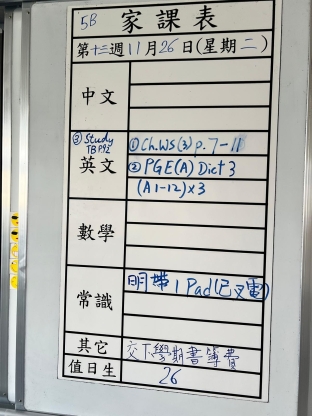 5B 家課表
第十三週11月26日(星期二)
中文
③ Study
TB P92
英文
① Ch.WS(3) p.7-11
② PGE(A) Dict 3
(A1-12)x3
數學
常識
明帶 iPad(已叉電)
其它
交下學期書簿費
值日生
26